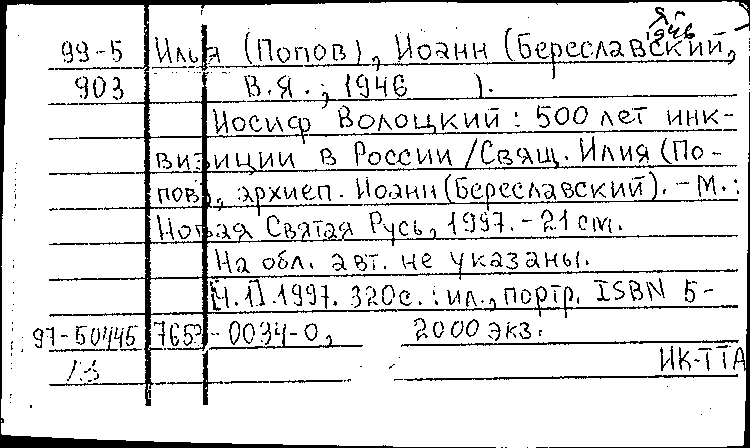 Я
1946
99-5 Илья (Попов), Иоанн (Береславский,
903 В.Я.; 1946 ).
Иосиф Волоцкий: 500 лет инк-
визиции в России / Свящ. Илия (По-
пов), архиеп. Иоанн (Береславский). - М.:
Новая Святая Русь, 1997. - 21 см.
На обл. авт. не указаны.
[Ч. 1]. 1997. 320 с.: ил., портр. ISBN 5-
97-50445 7653-0034-0, 2000 экз.
НК-ТТА